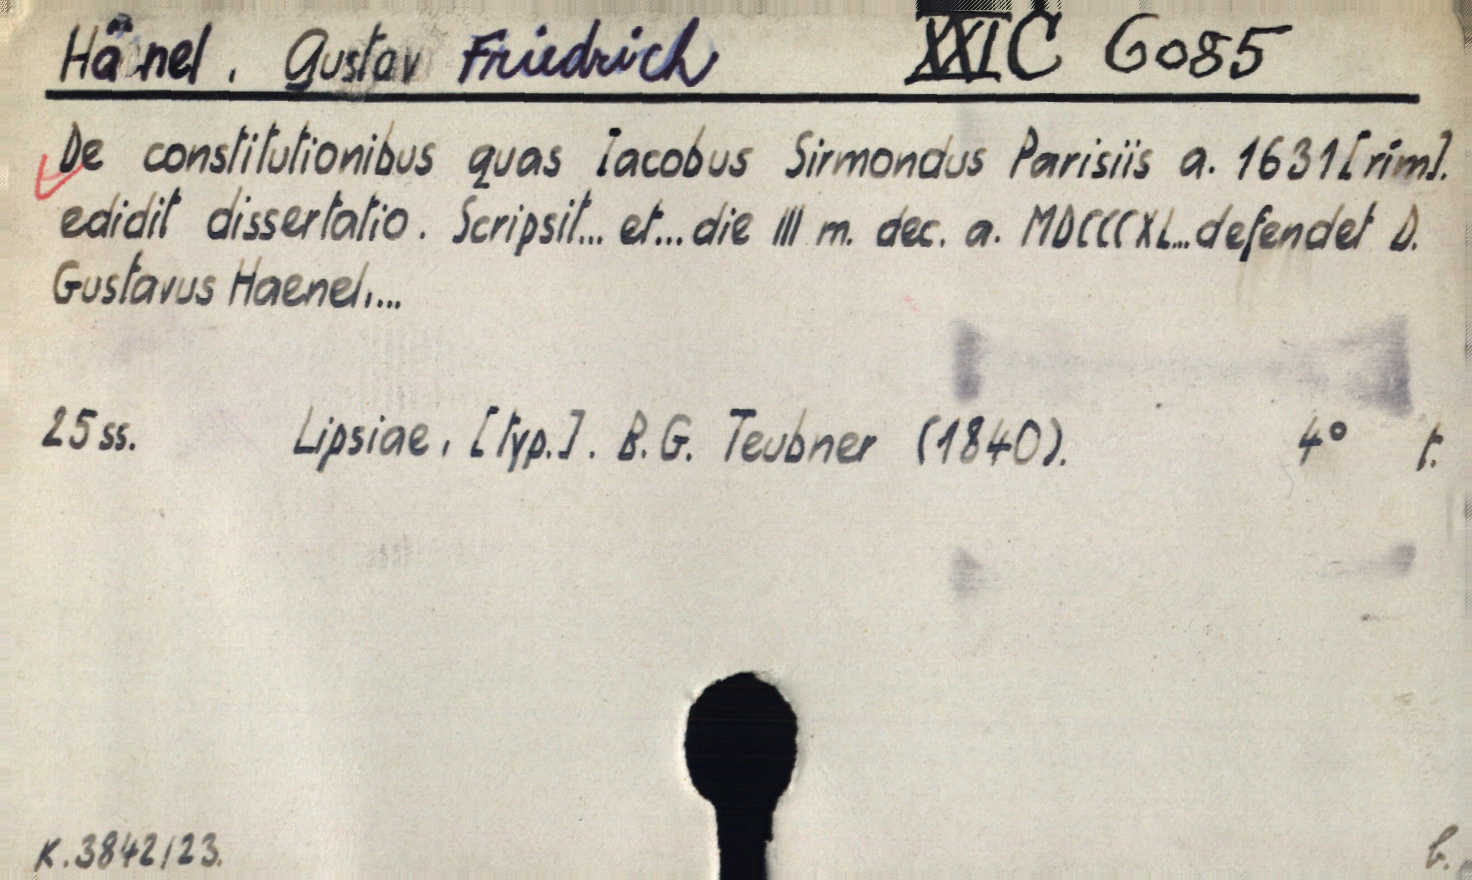 Hänel, Gustav Friedrich XXI C 6085
De constitutionibus quas Iacobus Sirmondus Parisiis a. 1631 [rim].
edidit dissertatio. Scripsit... et... die III m. dec. a. MDCCCXL... defendet D.
Gustavus Haenel,...
25 ss. Lipsiae, [typ.]. B.G. Teubner (1840). 4° t.
K. 3842/23. b.